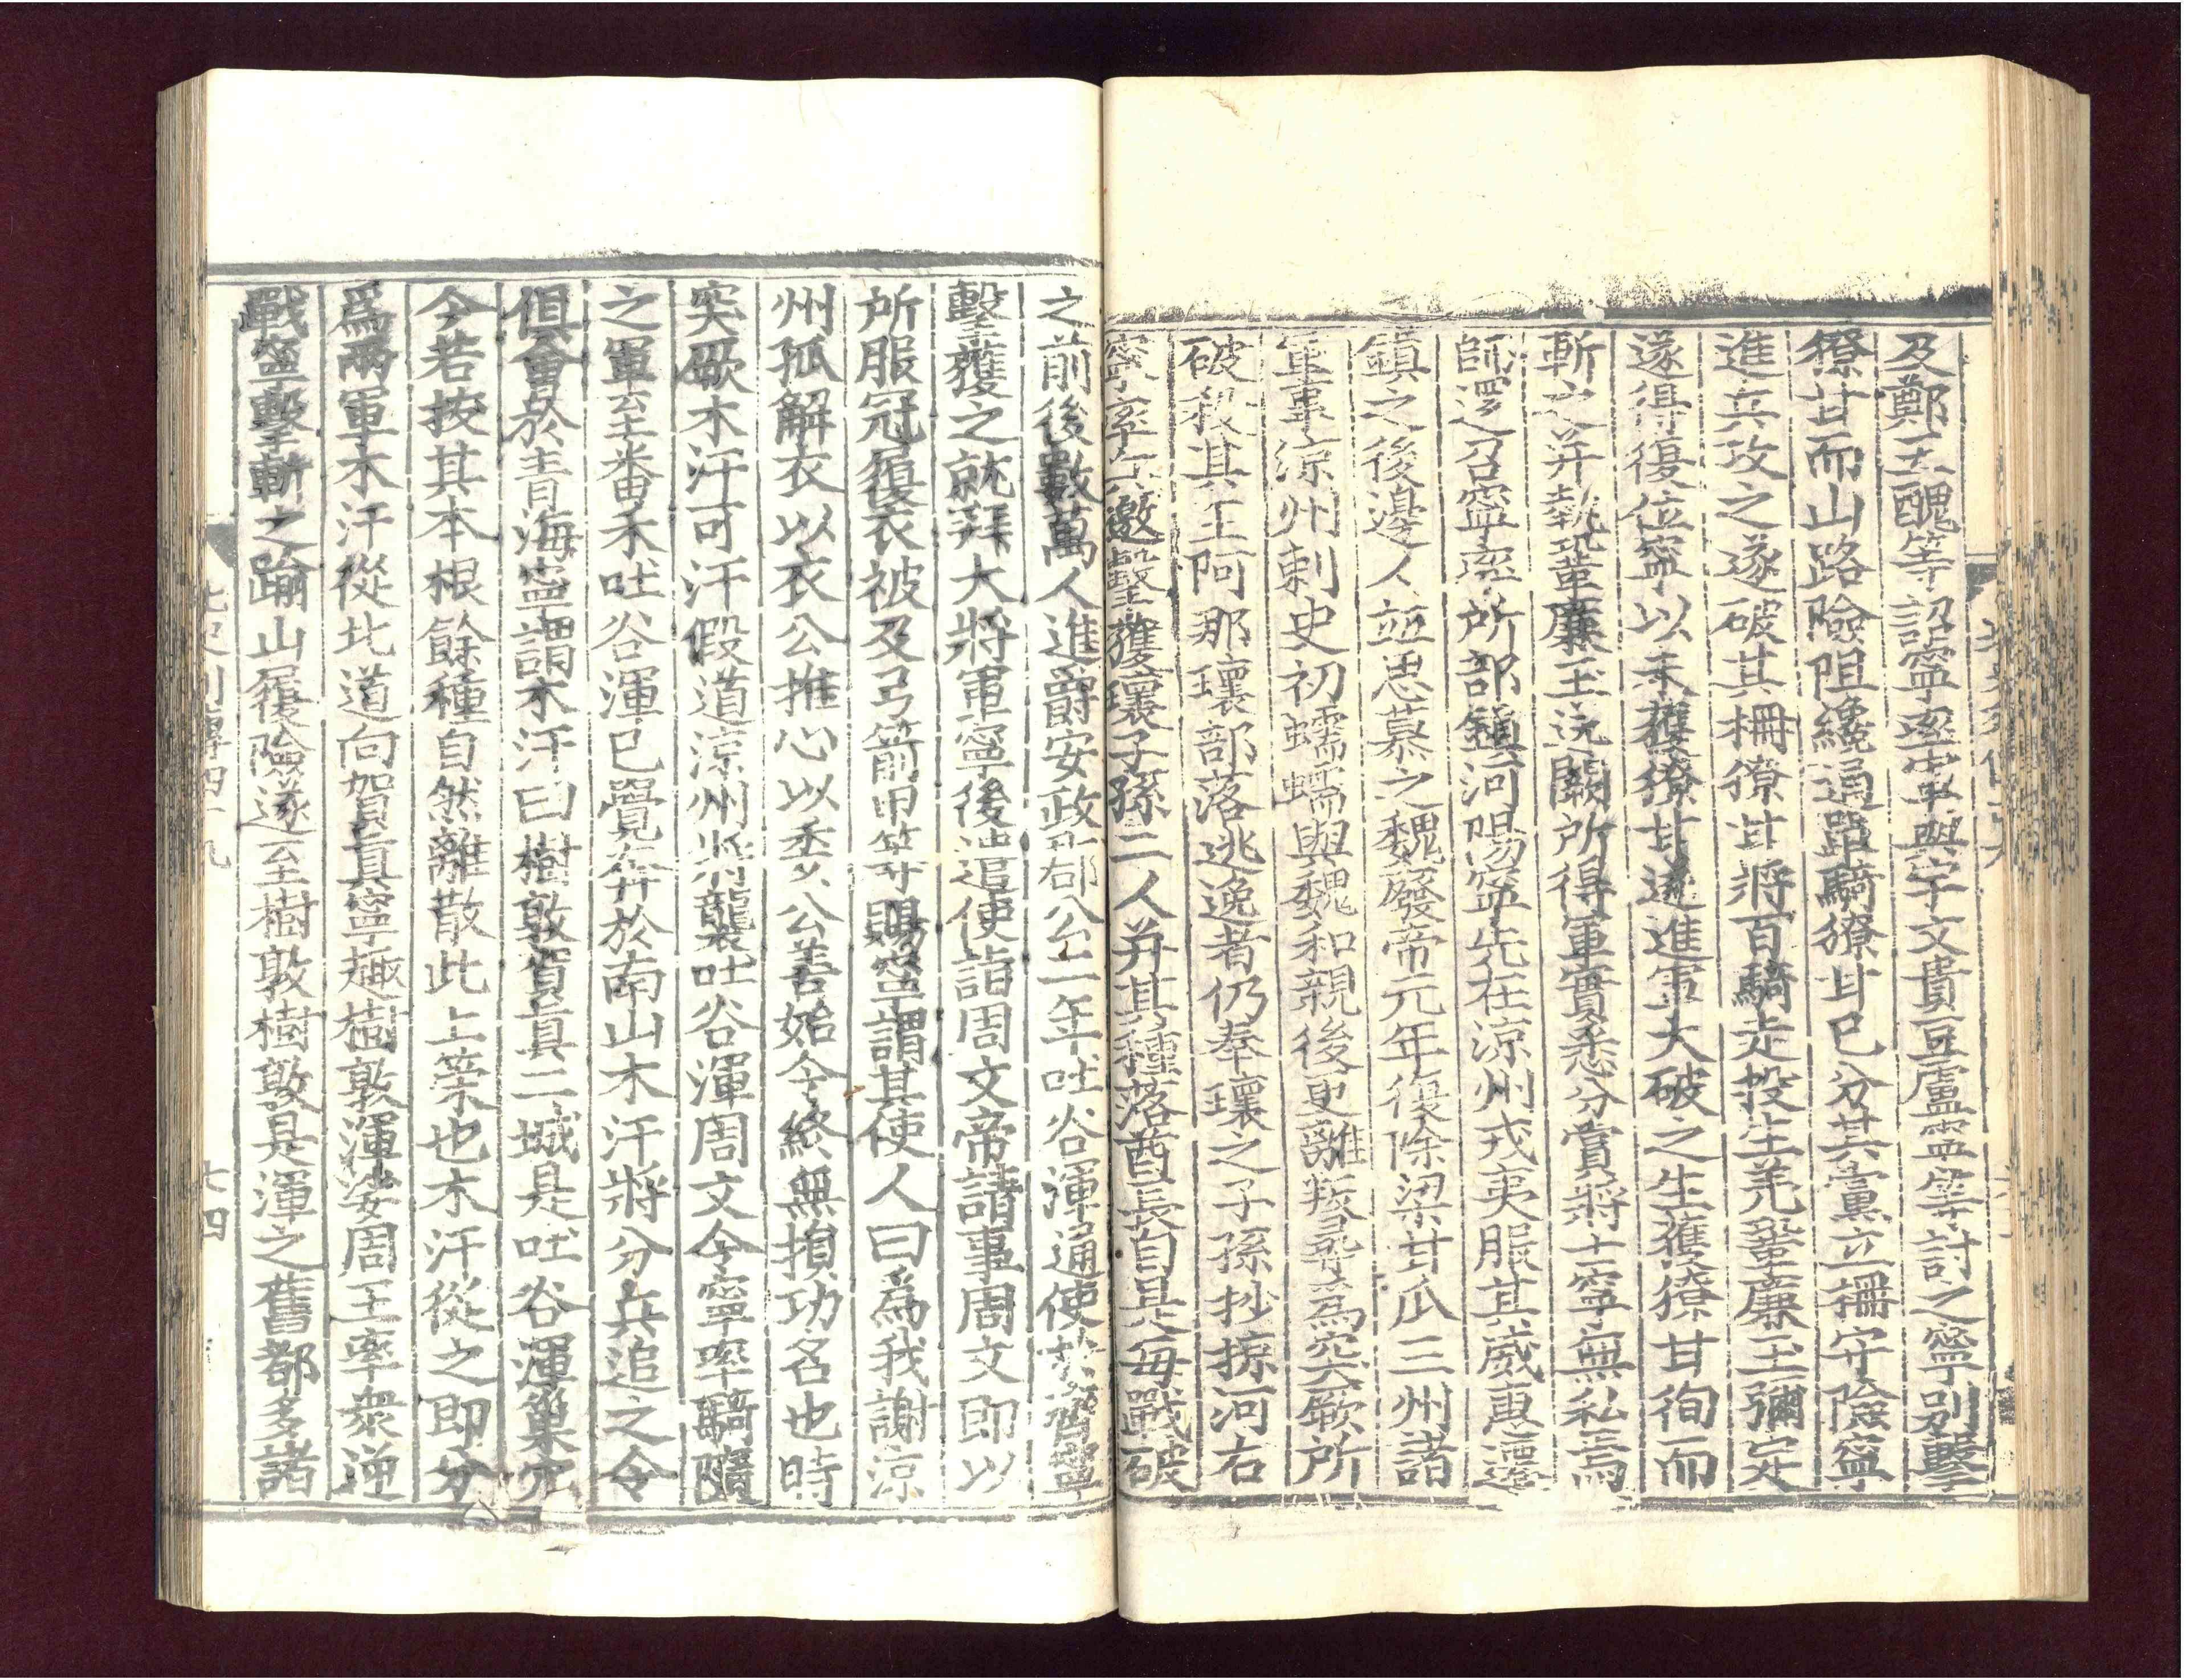 及鄭五醜等詔寧率軍與宇文貴豆盧寧等討之寧別擊
獠甘而山路險阻纔通單騎獠甘已分其黨立柵守險寧
進兵攻之遂破其柵獠甘將百騎走投生羌鞏廉玉彌定
遂得復位寧以未獲獠甘遂進軍大破之生獲獠甘徇而
斬之并執鞏廉玉送闕所得軍實悉分賞將士寧無私焉
師還召寧率所部鎮河陽寧先在涼州戎夷服其威惠遷
鎮之後邊人並思慕之魏廢帝元年復除梁甘瓜三州諸
軍事涼州刺史初蠕蠕與魏和親後更離叛尋為突厥所
破殺其王阿那瓌部落逃逸者仍奉瓌之子孫抄掠河右
寧率兵邀擊獲瓌子孫二人并其種落酋長自是每戰破
之前後數萬人進爵安政郡公二年吐谷渾通使於齊寧
擊獲之就拜大將軍寧後遣使詣周文帝請事周文即以
所服冠履衣被及弓箭甲等賜寧謂其使人曰爲我謝涼
州孤解衣以衣公推心以委公公善始令終無損功名也時
突厥木汗可汗假道涼州將襲吐谷渾周文令寧率騎隨
之軍至番禾吐谷渾已覺奔於南山木汗將分兵追之令
俱會於青海寧謂木汗曰樹敦賀真二城是吐谷渾巢穴
今若拔其本根餘種自然離散此上策也木汗從之即分
爲兩軍木汗從北道向賀真寧趣樹敦渾娑周王率衆逆
戰寧擊斬之踰山履險遂至樹敦樹敦是渾之舊都多諸
北史列傳四十九
七四